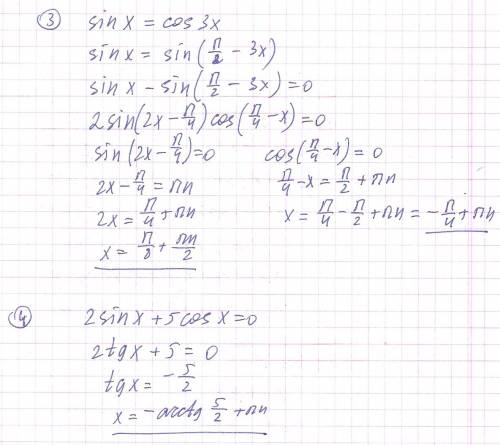 ③ sin x = cos 3x
sin x = sin(π/2 − 3x)
sin x − sin(π/2 − 3x) = 0
2 sin(2x − π/4) cos(π/4 − x) = 0
sin(2x − π/4) = 0 cos(π/4 − x) = 0
2x − π/4 = πn π/4 − x = π/2 + πn
2x = π/4 + πn x = π/4 − π/2 + πn = −π/4 + πn
x = π/8 + πn/2
④ 2 sin x + 5 cos x = 0
2 tg x + 5 = 0
tg x = −5/2
x = −arctg 5/2 + πn